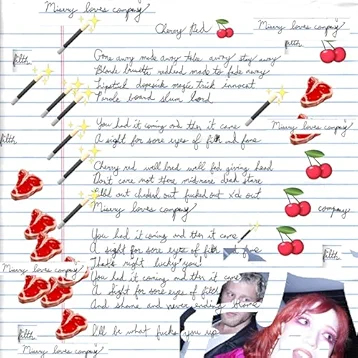 Misery loves company
Cherry Red
Misery loves company
filth
filth
Come away make away take away stay away
Blonde brunette redhead made to fade away
Lipstick dipstick magic trick innocent
bored
You had it coming and then it came
Misery loves company
filth
A sight for sore eyes of filth and fame
Cherry red well bred well fed giving head
Don't care not there
out out fucked out x'd out
Misery loves company
company
You had it coming and then it came
A sight for sore eyes of filth and fame
That's right lucky you!
filth
Misery loves company
You had it coming and then it came
A sight for sore eyes of filth
And shame and never ending
filth
I'll be what fucks you up
Misery loves company